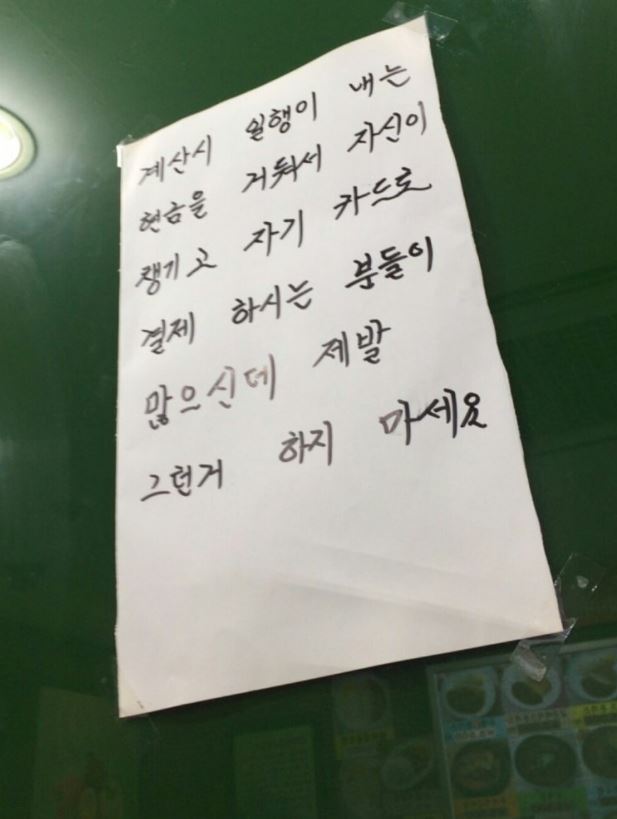 계산시 일행이 내는
현금을 거둬서 자신이
챙기고 자기 카드로
결제 하시는 분들이
많으신데 제발
그런거 하지 마세요